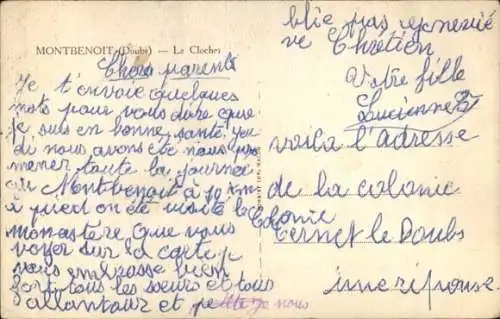 MONTBENOIT (Doubs) - Le Clocher
Chers parents
Je t'envoie quelques
mots pour vous dire que
je suis en bonne santé jeu
di nous avons été nous pro
mener toute la journée
au Montbenoit à 10 km
à pied on été visité le
monastère que vous
voyer sur la carte je
vous embrasse bien
fort tous les soeurs et tous
allantour et je nous
blie pas
ve Chrétien
Votre fille
Lucienne
voila l'adresse
de la colonie
Colonie
Cernet le Doubs
une réponse.